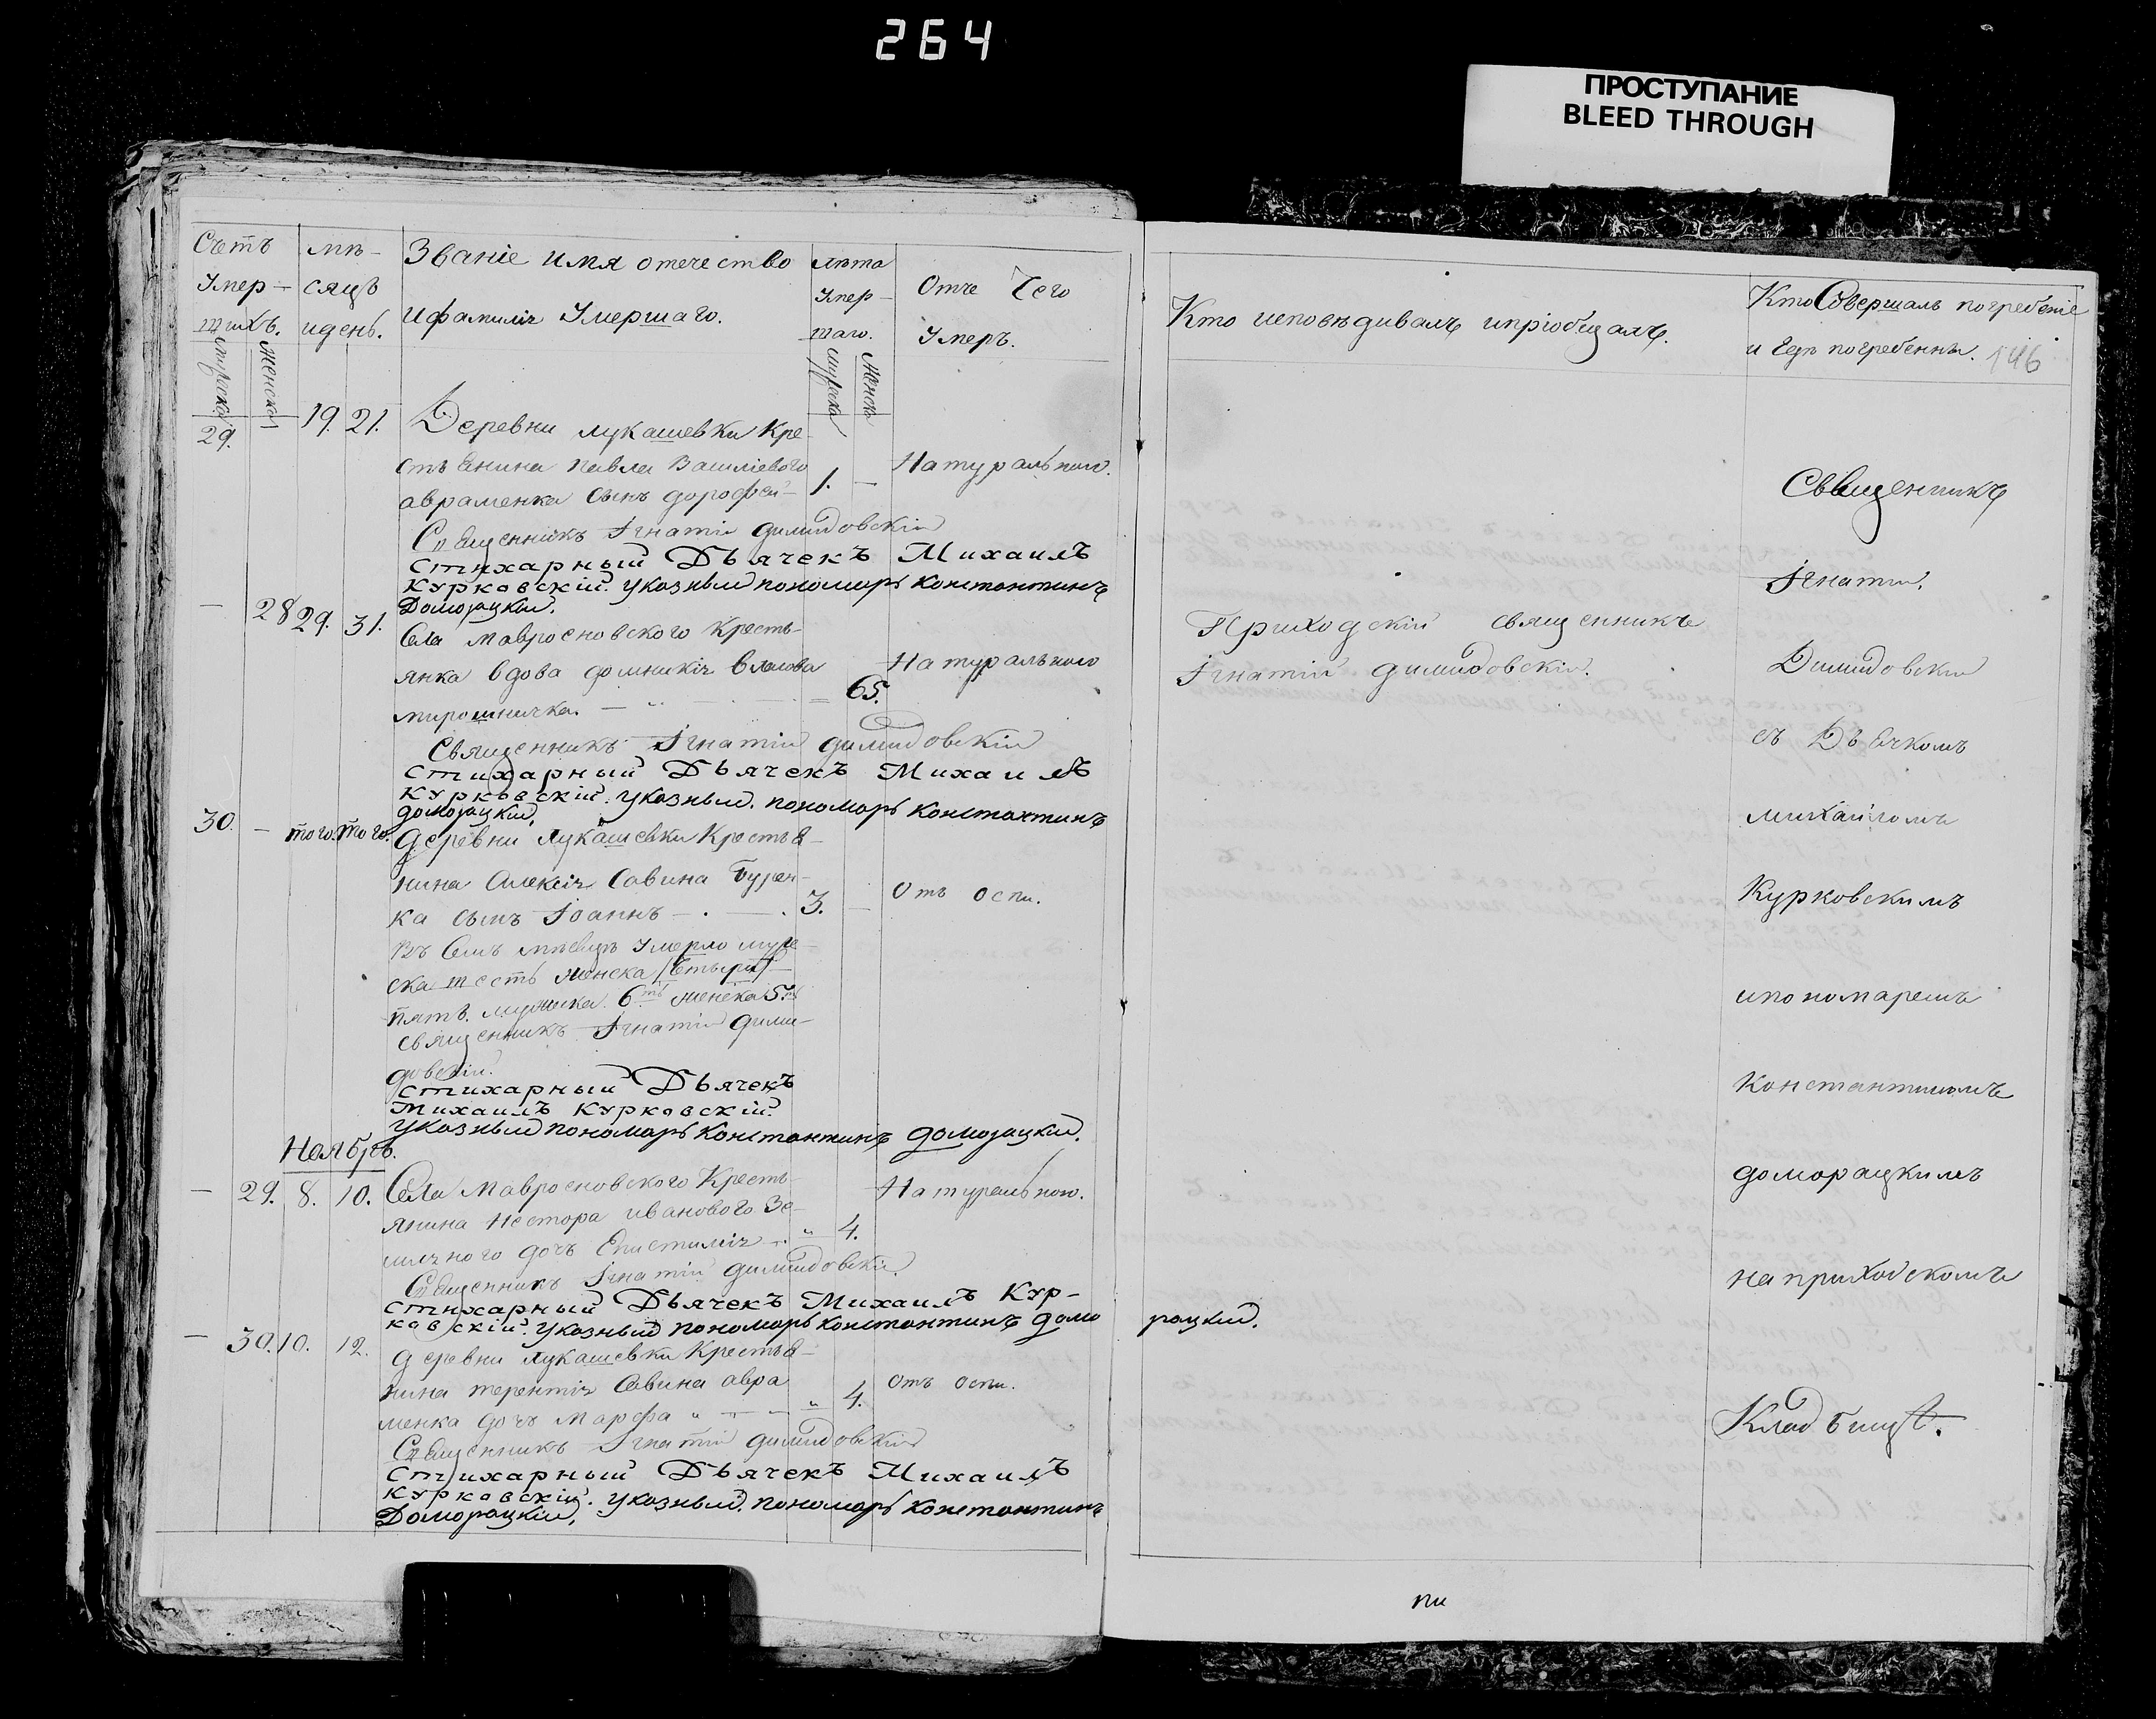 264
ПРОСТУПАНИЕ
BLEED THROUGH
Счетъ
Умер-
шихъ.
мужеска
женска
мѣ-
сяцъ
и день.
Званіе имя отечество
и фамилія Умершаго.
лѣта
Умер-
шаго.
мужеска
женск
Отче чего
Умеръ.
Кто исповѣдивалъ и пріобщалъ.
Кто Совершалъ погребеніе
и гдѣ погребенны.
146
29.
19. 21.
Деревни лукашевки Кре-
стьянина павла Василіевого
авраменка сынъ дорофей- 1. —
Натуральною.
Священникъ Ігнатій димидовскій
Стихарный Дьячекъ Михаилъ
Курковскій. указный пономарь Константинъ
Доморацкій.
— 28 29. 31.
Села мавросновского Кресть-
янка вдова домникія власова
мирошничка. 65.
Натуральною
Священникъ Ігнатій димидовскій
Стихарный Дьячекъ Михаилъ
Курковскій. указный. пономарь Константинъ
доморацкій.
30. — того. того.
деревни лукашевки Крестья-
нина Алексія Савина
ка сынъ Іоаннъ — . — . 3. —
Отъ оспи.
Въ семъ мѣсяцѣ Умерло муже-
ска шесть женска /четыри/
пять. мужиска. 6ть женска 5ть
священникъ Ігнатій дими-
довскій.
Стихарный Дьячекъ
Михаилъ Курковскій.
указный пономарь Константинъ доморацкій.
Ноябрь.
— 29. 8. 10.
Села Мавросновского Кресть-
янина Нестора иванового Зе-
мляного дочь Епистимія „ 4.
Натуральною.
Священникъ Ігнатій димидовскій
Стихарный Дьячекъ Михаилъ Кур-
ковскій. указный пономарь Константинъ домо
рацкій.
— 30. 10. 12.
деревни лукашевки Крестья-
нина терентія Савина авра
менка дочь Марфа „ — — „ 4.
Отъ оспи.
Священникъ Ігнатій димидовскій
Стихарный Дьячекъ Михаилъ
Курковскій. указный. пономарь Константинъ
Доморацкій.
Приходскій священникъ
Ігнатій димидовскій.
Священникъ
Ігнатій.
Димидовскій
съ Дьячкомъ
михаиломъ
Курковскимъ
и пономаремъ
Константиномъ
доморацкимъ
на приходскомъ
Кладбищѣ.
пи